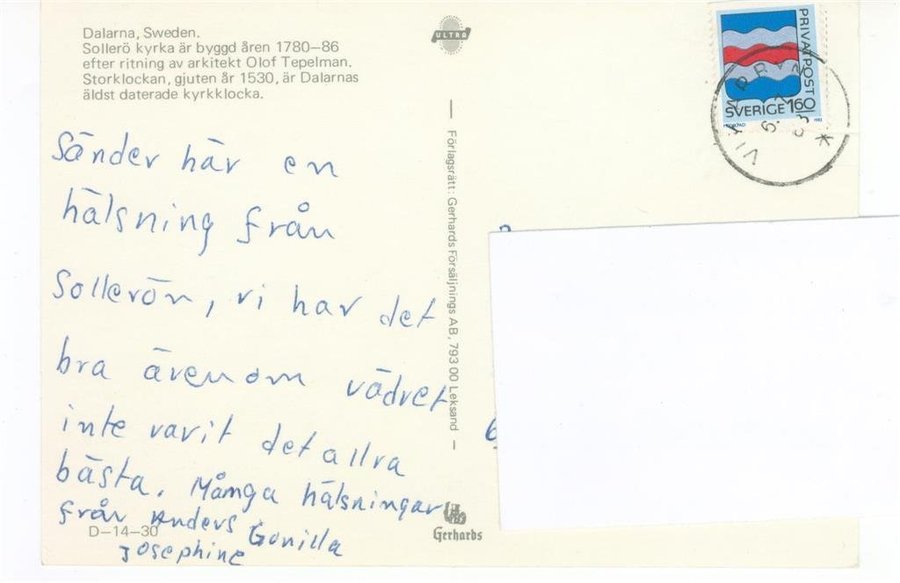 Dalarna, Sweden.
Sollerö kyrka är byggd åren 1780–86
efter ritning av arkitekt Olof Tepelman.
Storklockan, gjuten år 1530, är Dalarnas
äldst daterade kyrkklocka.
Sänder här en
hälsning från
Sollerön, vi har det
bra även om vädret
inte varit det allra
bästa. Många hälsningar
från Anders Gunilla
Josephine
D–14–30
ULTRA
Förlagsrätt: Gerhards Försäljnings AB, 793 00 Leksand
Gerhards
PRIVATPOST
SVERIGE 160